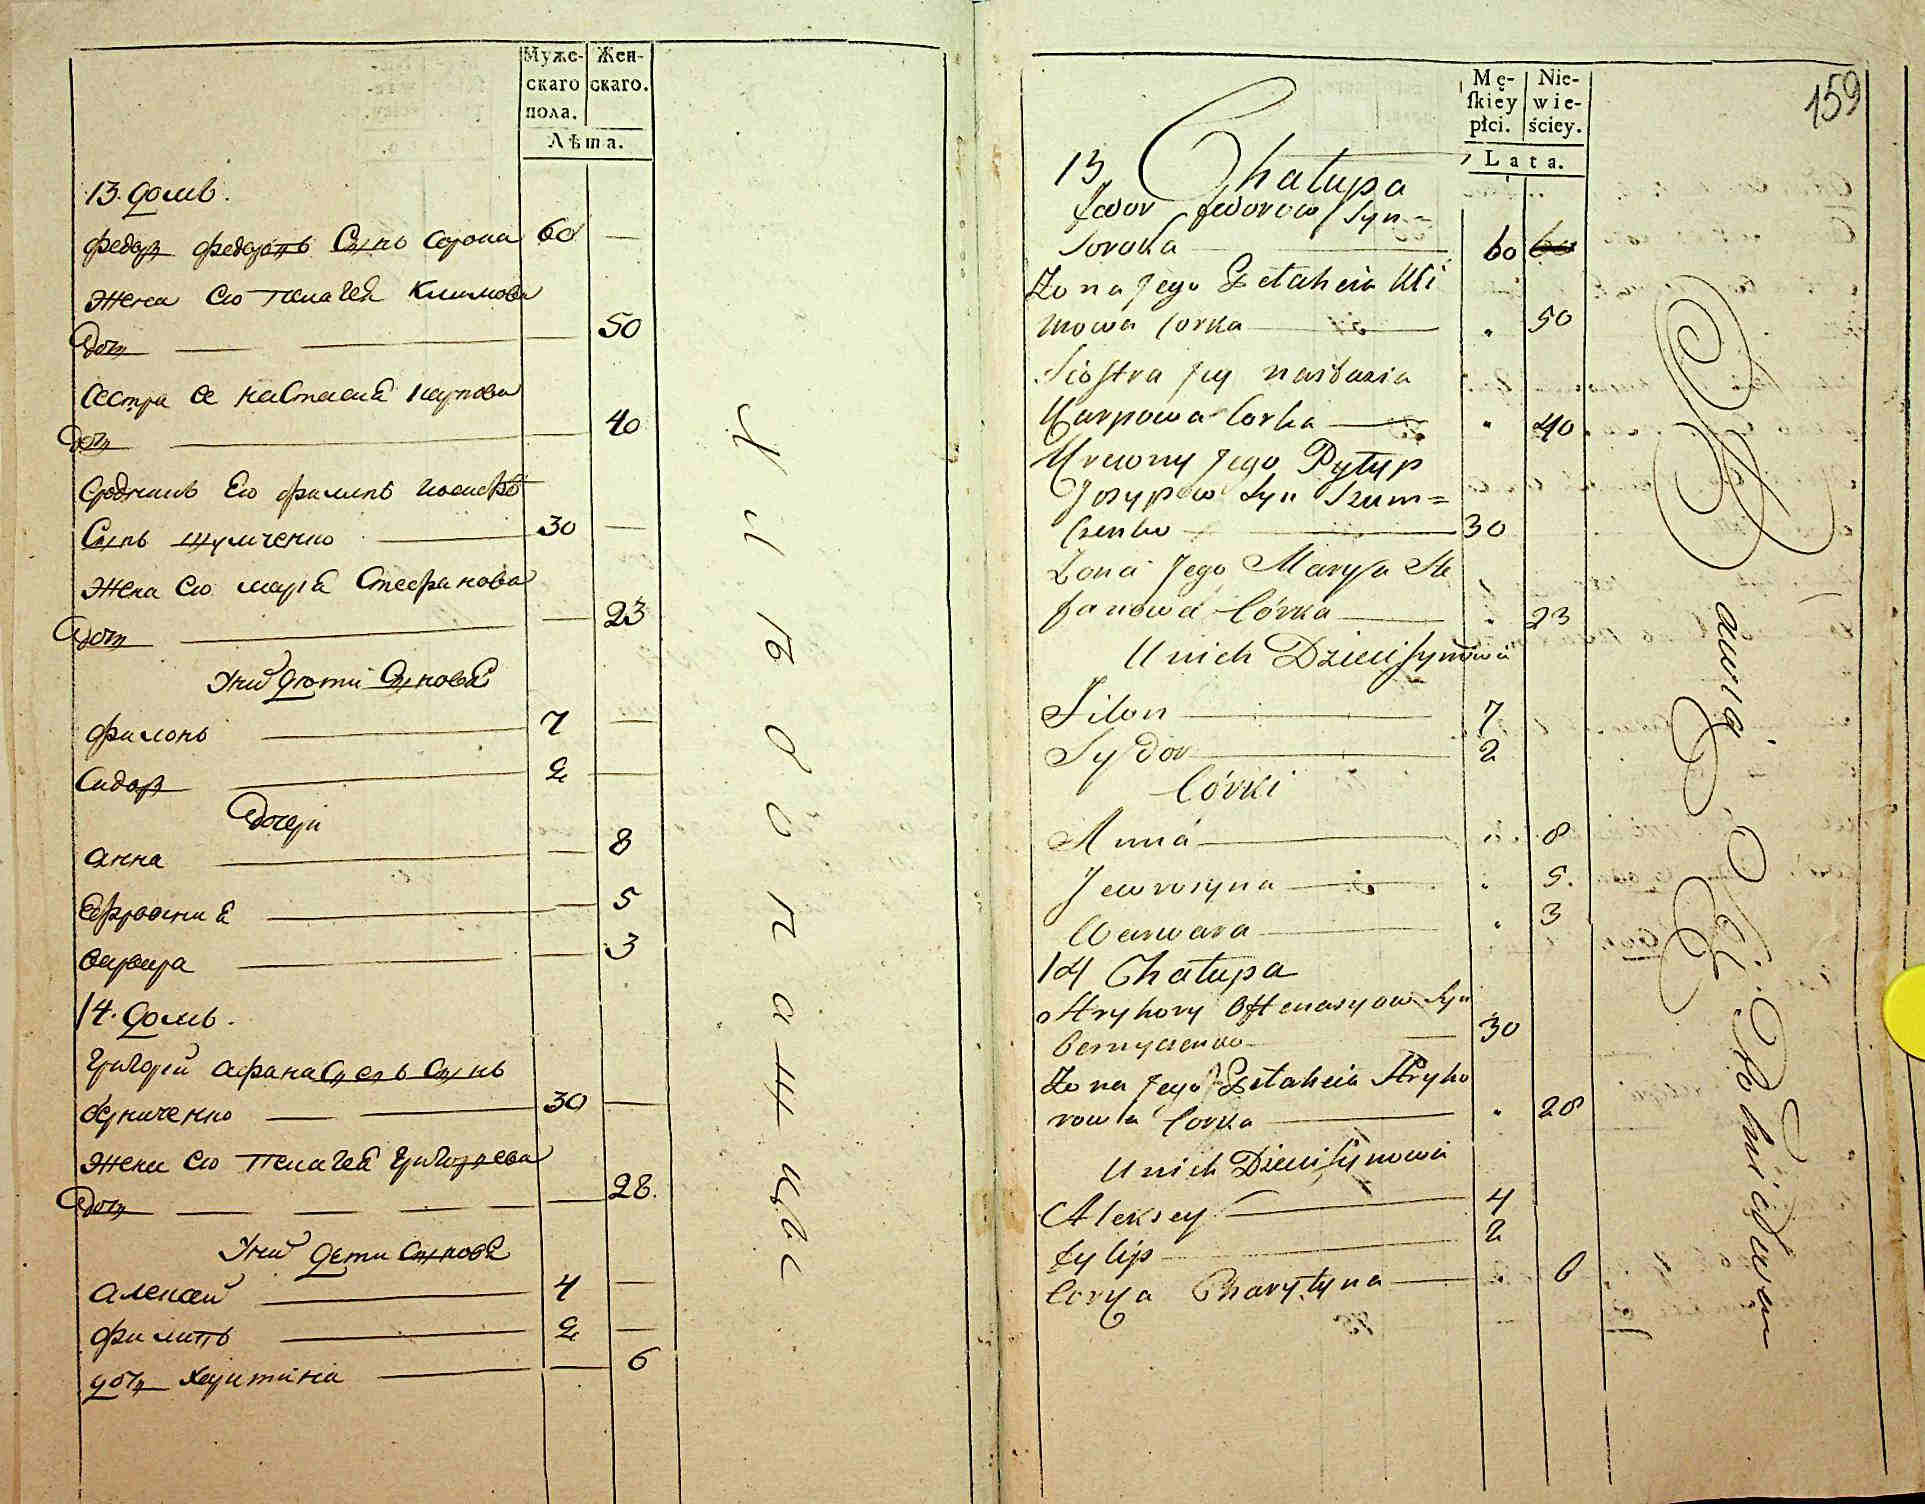 Муже-
скаго
пола.
Жен-
скаго.
Лѣта.
13. домъ.
Федоръ Федоровъ Сынъ Сорока 60 —
Жена Ею Пелагея Климова
Дочь — — — 50
Сестра Ее Настасия Карпова
Дочь — — 40
Сродникъ Ею Филипъ
Сынъ Шумченко — 30 —
Жена Ею Мария Стефанова
Дочь — — 23
Унихъ дети Сыновя
Филонъ — 7 —
Сидоръ — 2 —
Дочери
Анна — — 8
Ефросиния — — 5
Варвара — — 3
14. домъ.
Григорей Афанасиевъ Сынъ
— — 30 —
Жена Ею Пелагея Григорьева
Дочь — — — — — 28.
Унихъ дети Сыновя
Алексей — 4 —
Филипъ — 2 —
дочь Харитина — — 6
159
Mę-
ſkiey
płci.
Nie-
wie-
ściey.
Lata.
13 Chałupa
Fedor Fedorow Syn=
Soroka — 60
Zona Jego Pelaheia Kli
mowa Corka — " 50
Siostra Jey Nastazia
Karpowa Corka — " 40
Krewny Jego Pylyp
Josypow Syn Szum=
czenko — 30
Zona Jego Marya Ste
fanowa Córka — " 23
U nich Dzieci Synowia
Filon — 7
Sydor — 2
Córki
Anna — " 8
Jewrosyna — " 5.
Warwara — " 3
14 Chałupa
Hryhory Offanasyow Syn
— 30
Zona Jego Pelaheia Hryho
rowna Corka — " 28
U nich Dzieci Synowia
Aleksey — 4
Fylip — 2
Corka Charytyna — " 6